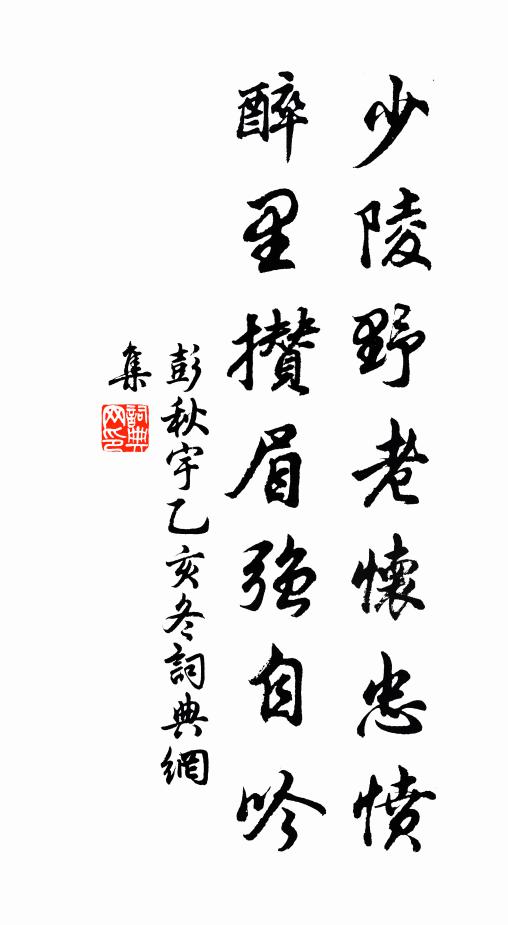 少陵野老懷忠憤
醉里攢眉強自吟
彭秋宇乙亥冬詞典網
集
詞典网印